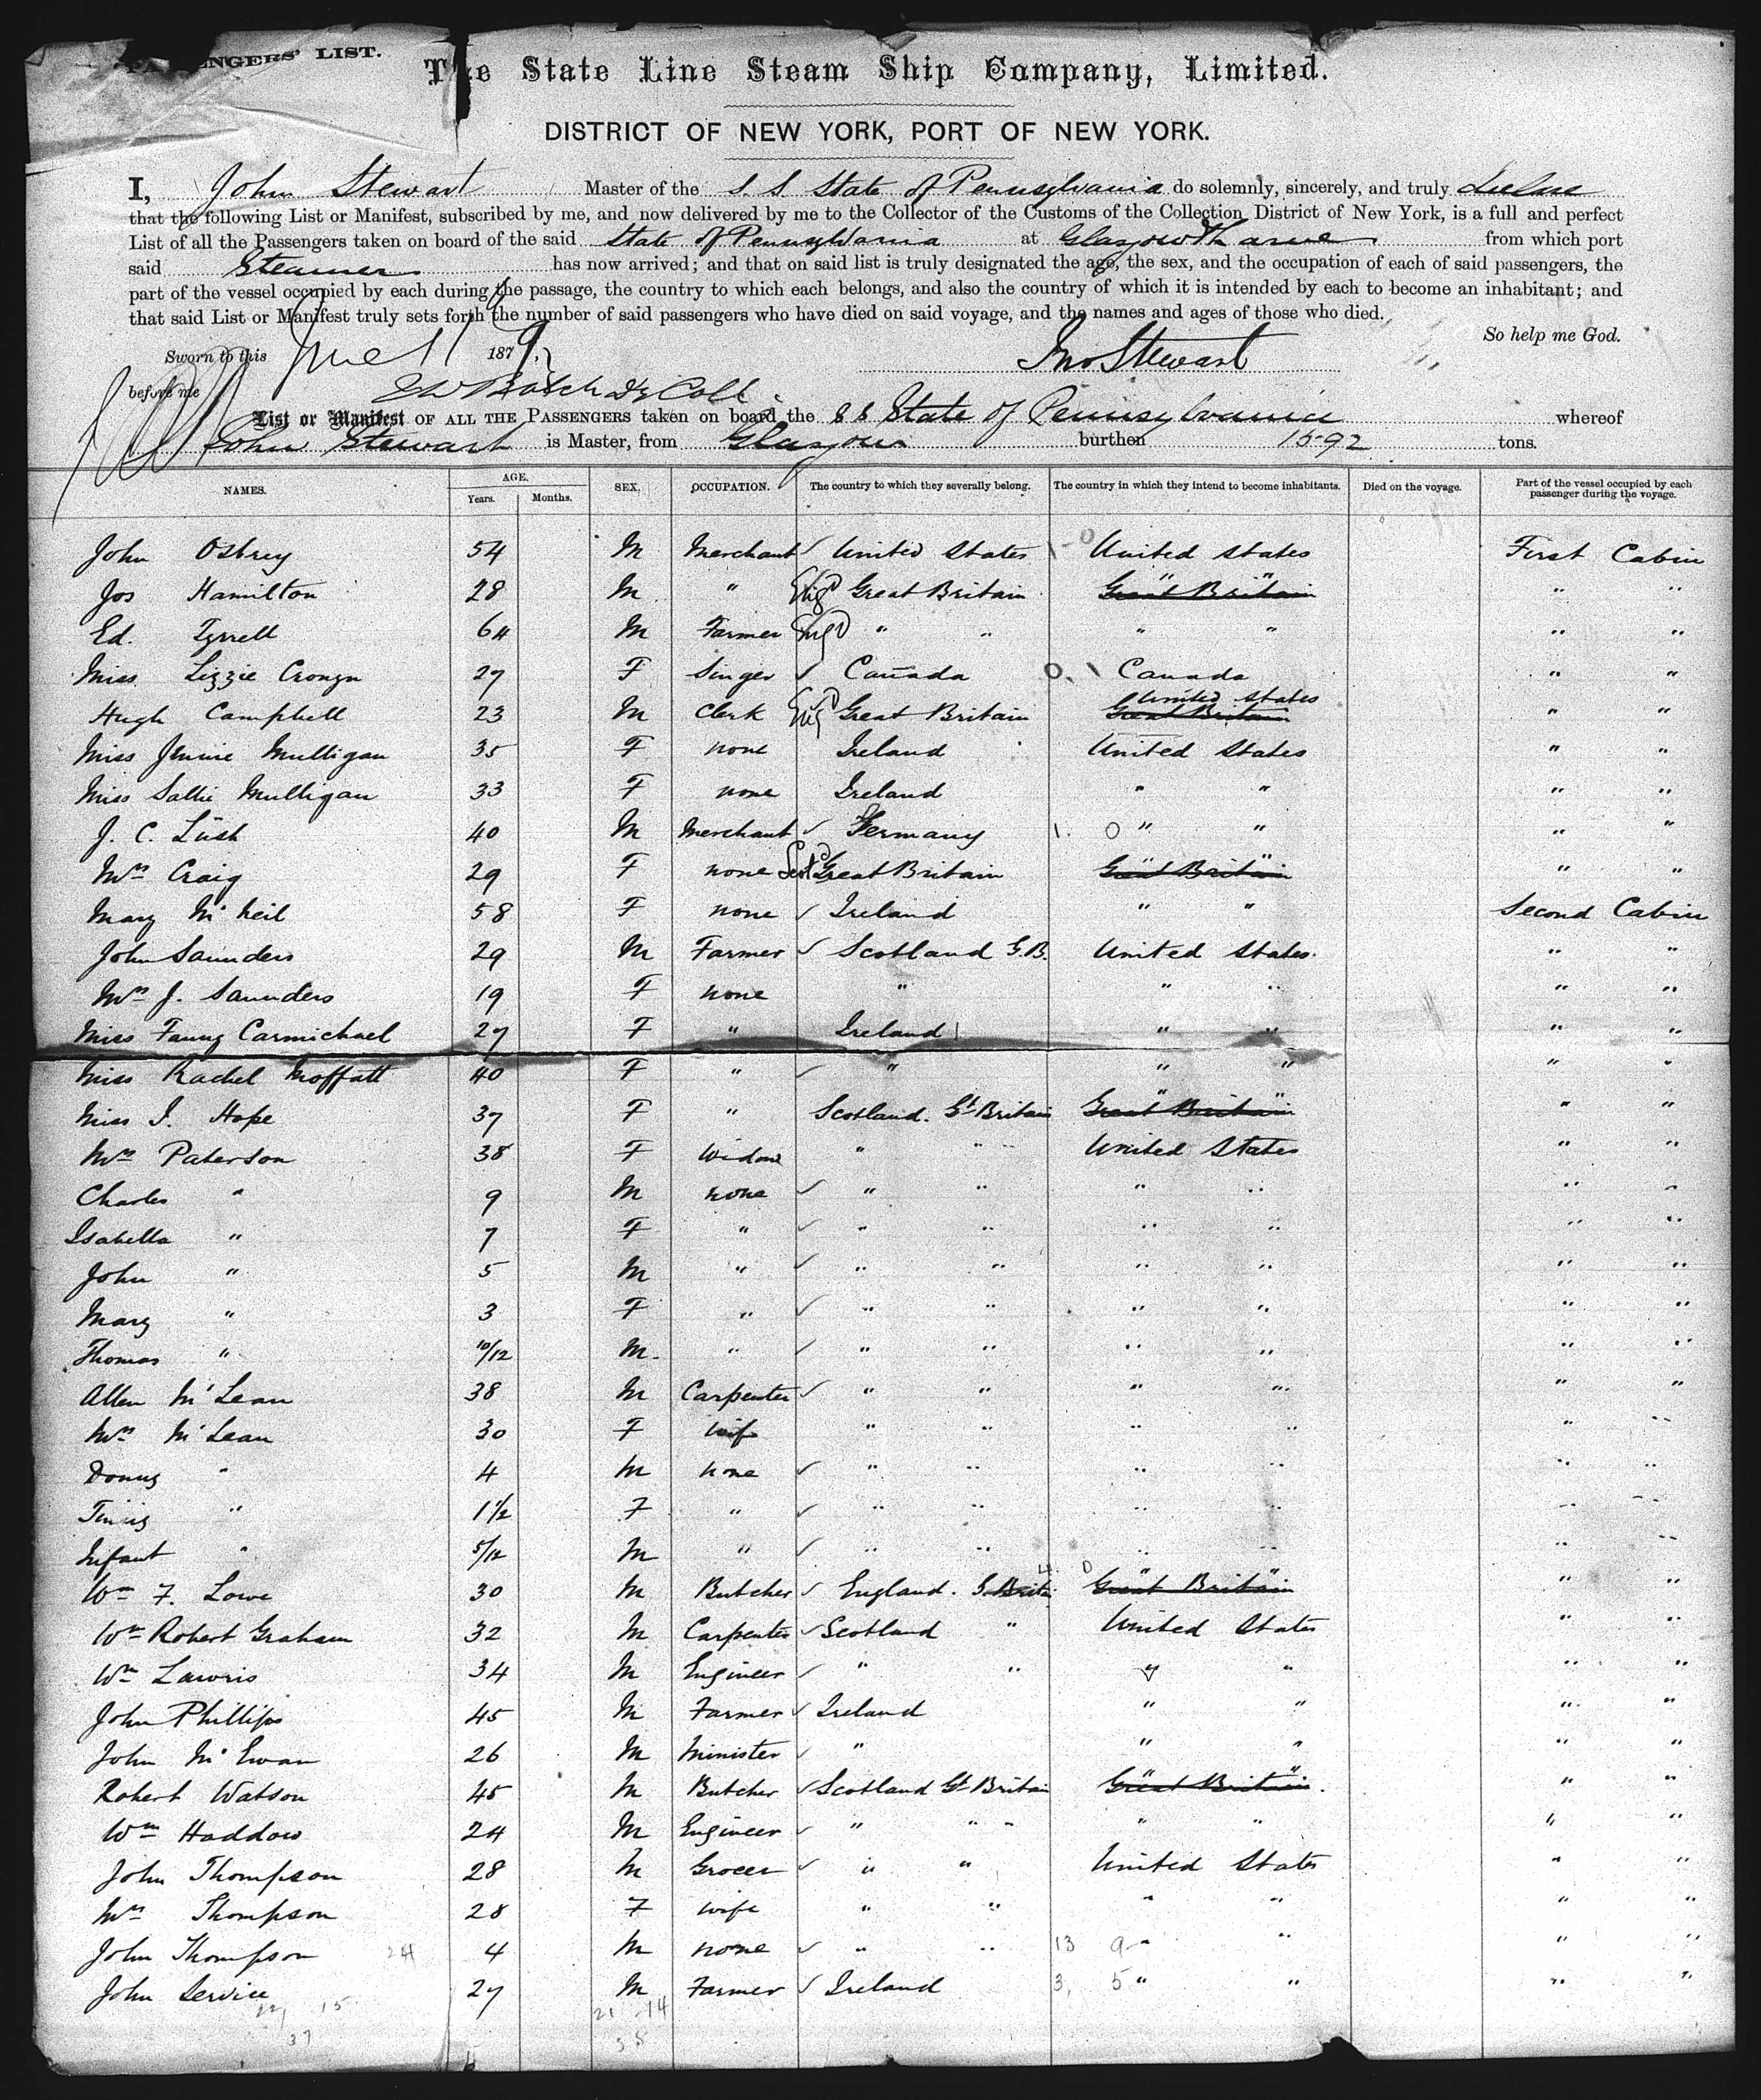 PASSENGERS' LIST.
The State Line Steam Ship Company, Limited.
DISTRICT OF NEW YORK, PORT OF NEW YORK.
I, John Stewart Master of the S. S. State of Pennsylvania do solemnly, sincerely, and truly declare
that the following List or Manifest, subscribed by me, and now delivered by me to the Collector of the Customs of the Collection District of New York, is a full and perfect
List of all the Passengers taken on board of the said State of Pennsylvania at Glasgow & Larne from which port
said Steamer has now arrived; and that on said list is truly designated the age, the sex, and the occupation of each of said passengers, the
part of the vessel occupied by each during the passage, the country to which each belongs, and also the country of which it is intended by each to become an inhabitant; and
that said List or Manifest truly sets forth the number of said passengers who have died on said voyage, and the names and ages of those who died.
So help me God.
Sworn to this June 11 1879
Jno Stewart
before me
List or Manifest OF ALL THE PASSENGERS taken on board the S S State of Pennsylvania whereof
John Stewart is Master, from Glasgow burthen 1592 tons.
NAMES. AGE. Years. Months. SEX. OCCUPATION. The country to which they severally belong. The country in which they intend to become inhabitants. Died on the voyage. Part of the vessel occupied by each passenger during the voyage.
John Osbrey 54 M Merchant United States United States First Cabin
Jos Hamilton 28 M " Eng Great Britain Great Britain " "
Ed. Tyrrell 64 M Farmer Eng " " " " " "
Miss Lizzie Cronyn 27 F Singer Canada Canada " "
Hugh Campbell 23 M Clerk Eng Great Britain Great Britain United States " "
Miss Jennie Mulligan 35 F none Ireland United States " "
Miss Sallie Mulligan 33 F none Ireland " " " "
J. C. Lüsh 40 M Merchant Germany " " " "
Mrs Craig 29 F none Scot Great Britain Great Britain " "
Mary McNeil 58 F none Ireland " " Second Cabin
John Saunders 29 M Farmer Scotland G.B. United States " "
Mrs J. Saunders 19 F none " " " " "
Miss Fanny Carmichael 27 F " Ireland " " " "
Miss Rachel Moffatt 40 F " " " " " "
Miss I. Hope 37 F " Scotland. Gt Britain Great Britain " "
Mrs Paterson 38 F Widow " " United States " "
Charles " 9 M none " " " " " "
Isabella " 7 F " " " " " " "
John " 5 M " " " " " " "
Mary " 3 F " " " " " " "
Thomas " 10/12 M. " " " " " " "
Allen McLean 38 M Carpenter " " " " " "
Mrs McLean 30 F Wife " " " " " "
Donny " 4 M none " " " " " "
" 1 1/2 F " " " " " " "
Infant " 5/12 M " " " " " " "
Wm F. Lowe 30 M Butcher England. G. Britain Great Britain " "
Wm Robert Graham 32 M Carpenter Scotland " United States " "
Wm Lawris 34 M Engineer " " " " " "
John Phillips 45 M Farmer Ireland " " " "
John McEwan 26 M Minister " " " " "
Robert Watson 45 M Butcher Scotland Gt Britain Great Britain " "
Wm Haddow 24 M Engineer " " " " " "
John Thompson 28 M Grocer " " United States " "
Mrs Thompson 28 F wife " " " " " "
John Thompson 24 4 M none " " 13 9 " " " "
John Service 27 M Farmer Ireland 3, 5 " " " "
22 15 21 14
37 35